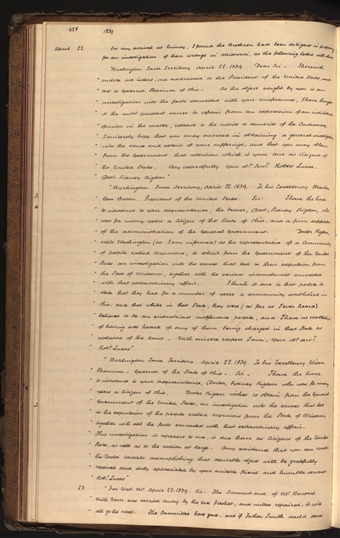 1839
April 22
On my arrival at Quincy, I found the Brethren had been diligent in
for an investigation of their wrongs in Missouri, as the following letters will show
"Burlington Iowa Territory April 22. 1839. Dear Sir – Herewith
enclose two letters, one addressed to the President of the United States, and
one to Governor Shannon of Ohio – As the object sought by you is an
investigation into the facts connected with your misfortunes, I have thought
it the most prudent course to refrain from an expression of an individual
opinion in the matter, relative to the merits or demerits of the controversy.
I sincerely hope that you may succeed in obtaining a general investigation
into the cause and extent of your sufferings, and that you may obtain
from the Government that attention which is your due as citizens of
the United States. Very respectfully your Obt Servt Robert Lucas.
Doct. Sidney Rigdon"
"Burlington, Iowa Territory, April 22, 1839. To his Excellency Martin
Van Buren. President of the United States. Sir: I have the honor
to introduce to your acquaintance, the bearer, Doct. Sidney Rigdon, who
was for many years a citizen of the State of Ohio, and a firm supporter
of the administration of the General Government. Doctor Rigdon
visits Washington (as I am informed) as the representative of a Community
of people called Mormons, to solicit from the Government of the United
States an investigation into the cause that led to their expulsion from
the State of Missouri, together with the various circumstances connected
with that extraordinary affair. I think it due to that people to
state that they had for a number of years a community established in
Ohio, and that while in that State, they were (as far as I ever heard)
believed to be an industrious inoffensive people, and I have no recollection
of having ever heard of any of them being charged in that State as
violators of the laws. With sincere respect I am, Your Obt Servt
Robt Lucas"
"Burlington Iowa Territory. April 22. 1839. To his Excellency Wilson
Shannon. Governor of the State of Ohio. Sir. I have the honor
to introduce to your acquaintance, Doctor Sidney Rigdon who was for many
years a citizen of Ohio. Doctor Rigdon wishes to obtain from the General
Government of the United States, an investigation into the causes that led
to the expulsion of the people called Mormons from the State of Missouri,
together with all the facts connected with that extraordinary affair.
This investigation it appears to me, is due them as citizens of the United
States, as well as to the nation at large. Any assistance that you can render
the Doctor towards accomplishing that desirable object will be gratefully
received and duly appreciated by your sincere friend and humble servant
Robt Lucas"
23
"Far West Mo. April 23. 1839. Sir. The summit end of
Mill Dam was carried away by the late freshet, and unless repaired, it will
all go the next. The Committee have gone, and if Father Smith would send